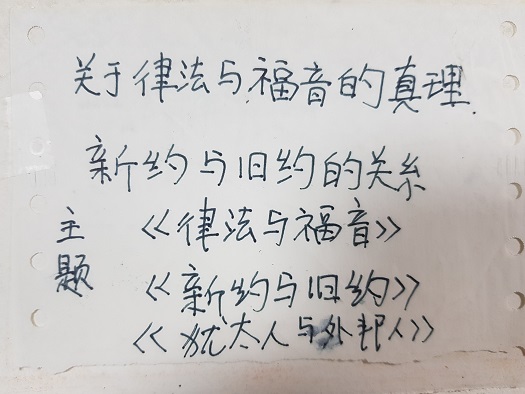 关于律法与福音的真理.
新约与旧约的关系
主题
《律法与福音》
《新约与旧约》
《犹太人与外邦人》